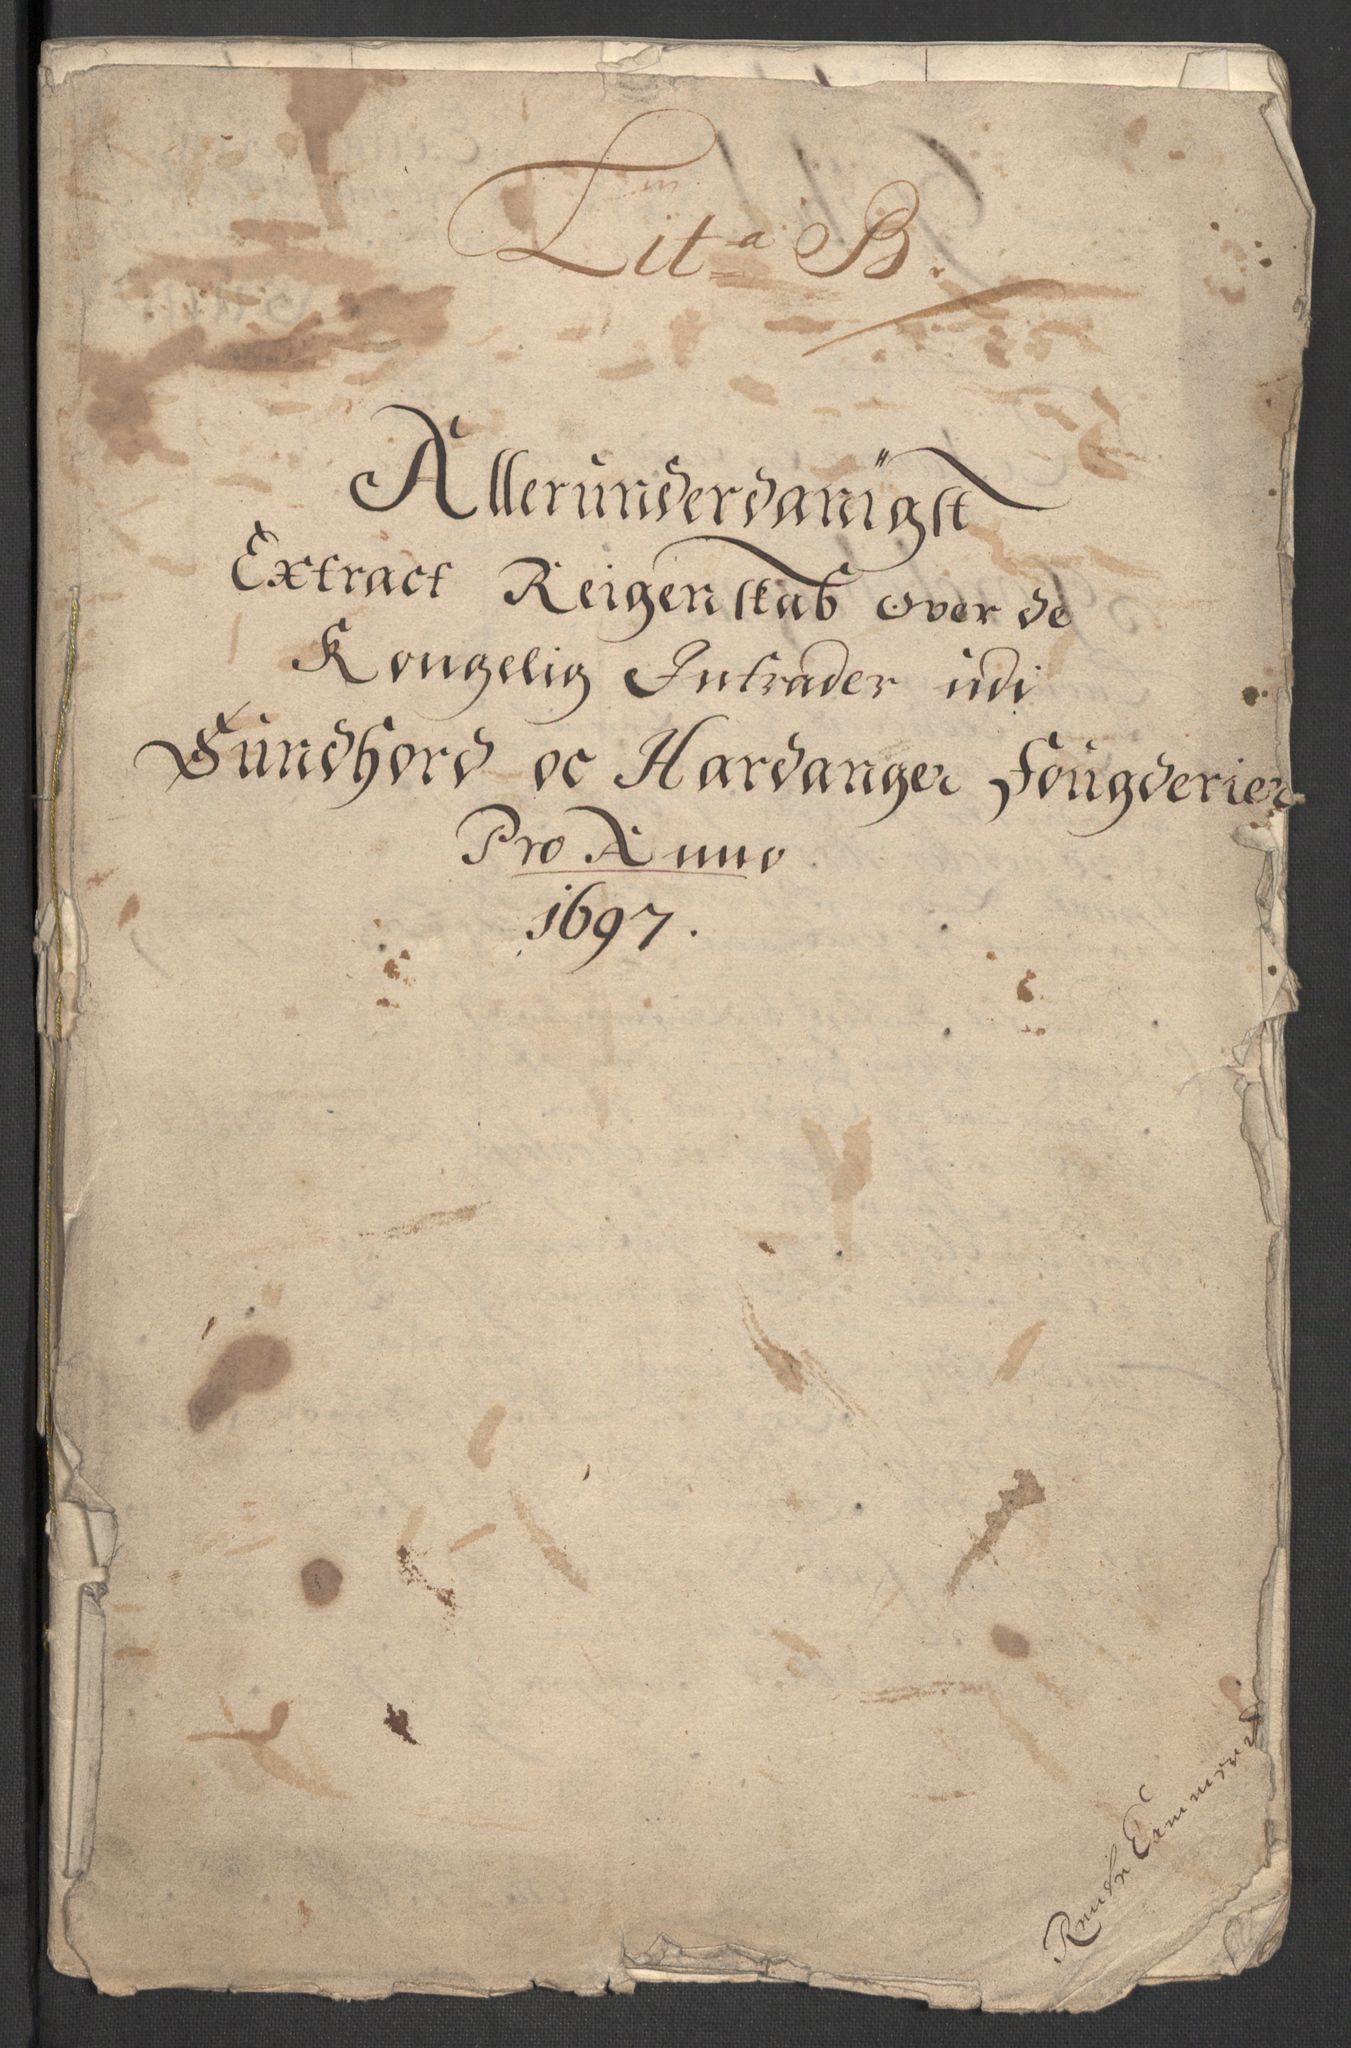 Lit.a B.
Allerunderdanigst
Extract Reigenskab over de
Kongelig Intrader udi
Sundhord oc Hardanger Fougderier
Pro Anno
1697.
Rente Cammered